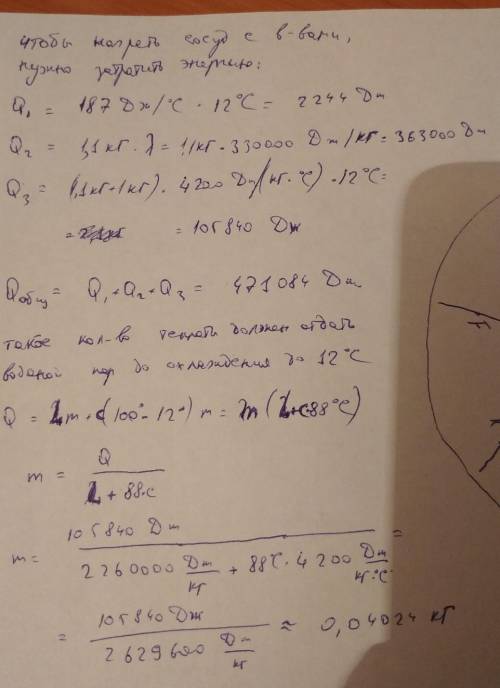 чтобы нагреть сосуд с в-вами,
нужно затратить энергию:
Q₁ = 187 Дж/°С · 12°С = 2244 Дж
Q₂ = 1,1 кг · λ = 1,1кг · 330000 Дж/кг = 363000 Дж
Q₃ = (1,1кг+1кг) · 4200 Дж/(кг·°С) · 12°С=
= = 105840 Дж
Qобщ = Q₁+Q₂+Q₃ = 471084 Дж
такое кол-во теплоты должен отдать
водяной пар до охлаждения до 12°С
Q = Lm + c(100°-12°)m = m(L+c88°С)
m = Q / (L + 88·c)
m = 105840 Дж / (2260000 Дж/кг + 88°С · 4200 Дж/кг·°С) =
= 105840 Дж / 2629600 Дж/кг ≈ 0,04024 кг